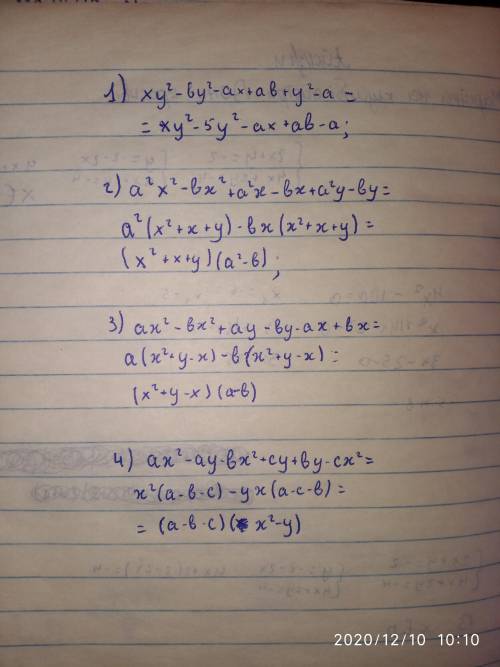 1) xy²-by²-ax+ab+y²-a=
= xy²-5y²-ax+ab-a;
2) a²x²-bx²+a²x-bx+a²y-by=
a²(x²+x+y)-bx(x²+x+y)=
(x²+x+y)(a²-b);
3) ax²-bx²+ay-by-ax+bx=
a(x²+y-x)-b(x²+y-x)=
(x²+y-x)(a-b)
4) ax²-ay-bx²+cy+by-cx²=
x²(a-b-c)-yx(a-c-b)=
= (a-b-c)(x²-y)
2020/12/10 10:10